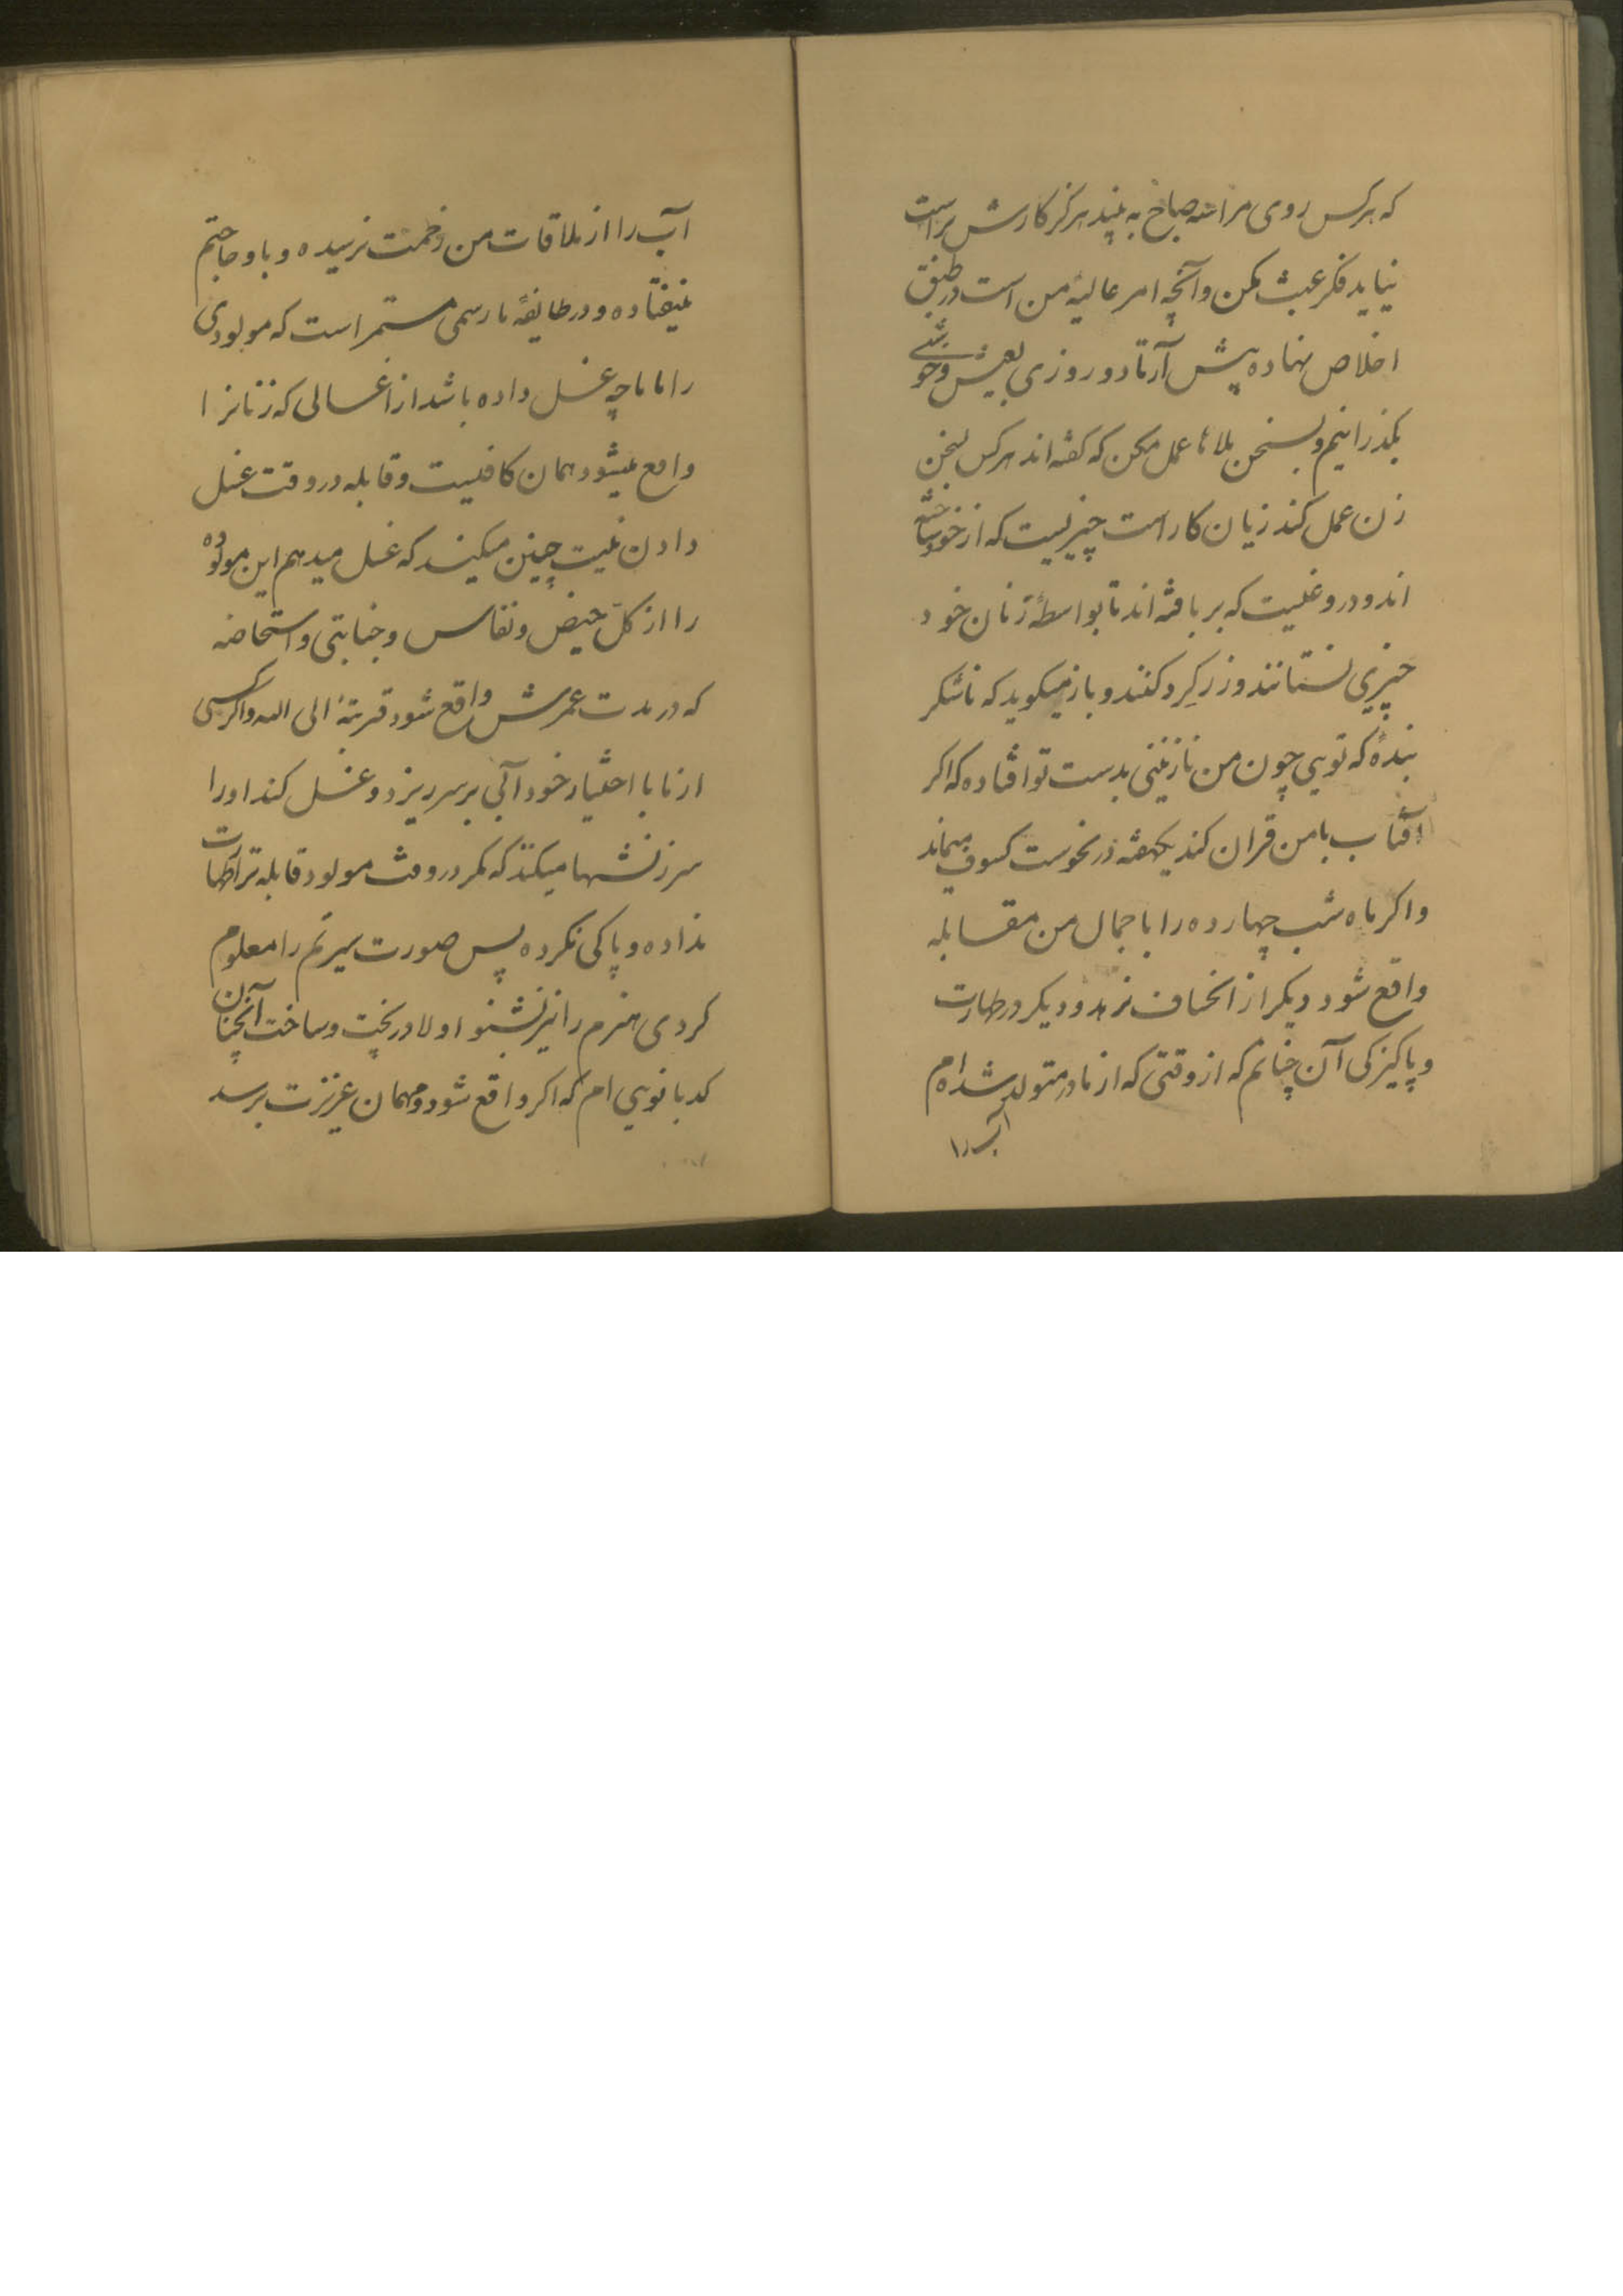 که هرکس روی مرا سه صباح به بیند هرگز کارش براست
نیاید فکر عبث مکن و آنچه امر عالیهٔ من است در طبق
اخلاص نهاده پیش آر تا دو روزی بعیش و خوشی
بگذرانیم و بسخن ملاها عمل مکن که گفته اند هرکس بسخن
زن عمل کند زیان کار است چیزیست که از خود ساخته
اند و دروغیست که بر بافته اند تا بواسطهٔ زنان خود
چیزی نستانند و زر گرد کنند و باز میکوید که ناشکر
بندهٔ که تویی چون من نازنینی بدست تو افتاده که اکر
آفتاب با من قران کند یکهفته در نحوست کسوف میماند
و اکر ماه شب چهارده را با جمال من مقابله
واقع شود دیکر از انخساف نرهد و دیکر در طهارت
و پاکیزکی آن چنانم که از وقتی که از مادر متولد شده ام
آب را
آب را از ملاقات من زحمت نرسیده و با و حاجتم
نیفتاده و در طایفهٔ ما رسمی مستمر است که مولودی
را ماماچه غسل داده باشد از اغسالی که زنانرا
واقع میشود همان کافیست و قابله در وقت غسل
دادن نیت چنین میکند که غسل میدهم این مولوده
را از کل حیض و نفاس و جنابتی و استحاضه
که در مدت عمرش واقع شود قربتهٔ الی الله و اکر کسی
از ما با اختیار خود آبی بر سر ریزد و غسل کند او را
سرزنشها میکنند که مکر در وقت مولود قابله ترا طهارت
نداده و پاکی نکرده پس صورت سیرتم را معلوم
کردی هنرم را نیز بشنو اولا در پخت و ساخت آنچنان
کدبانویی ام که اکر واقع شود و مهمان عزیزت برسد